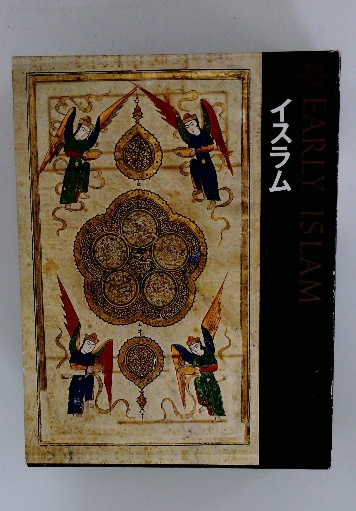 イスラム
EARLY ISLAM